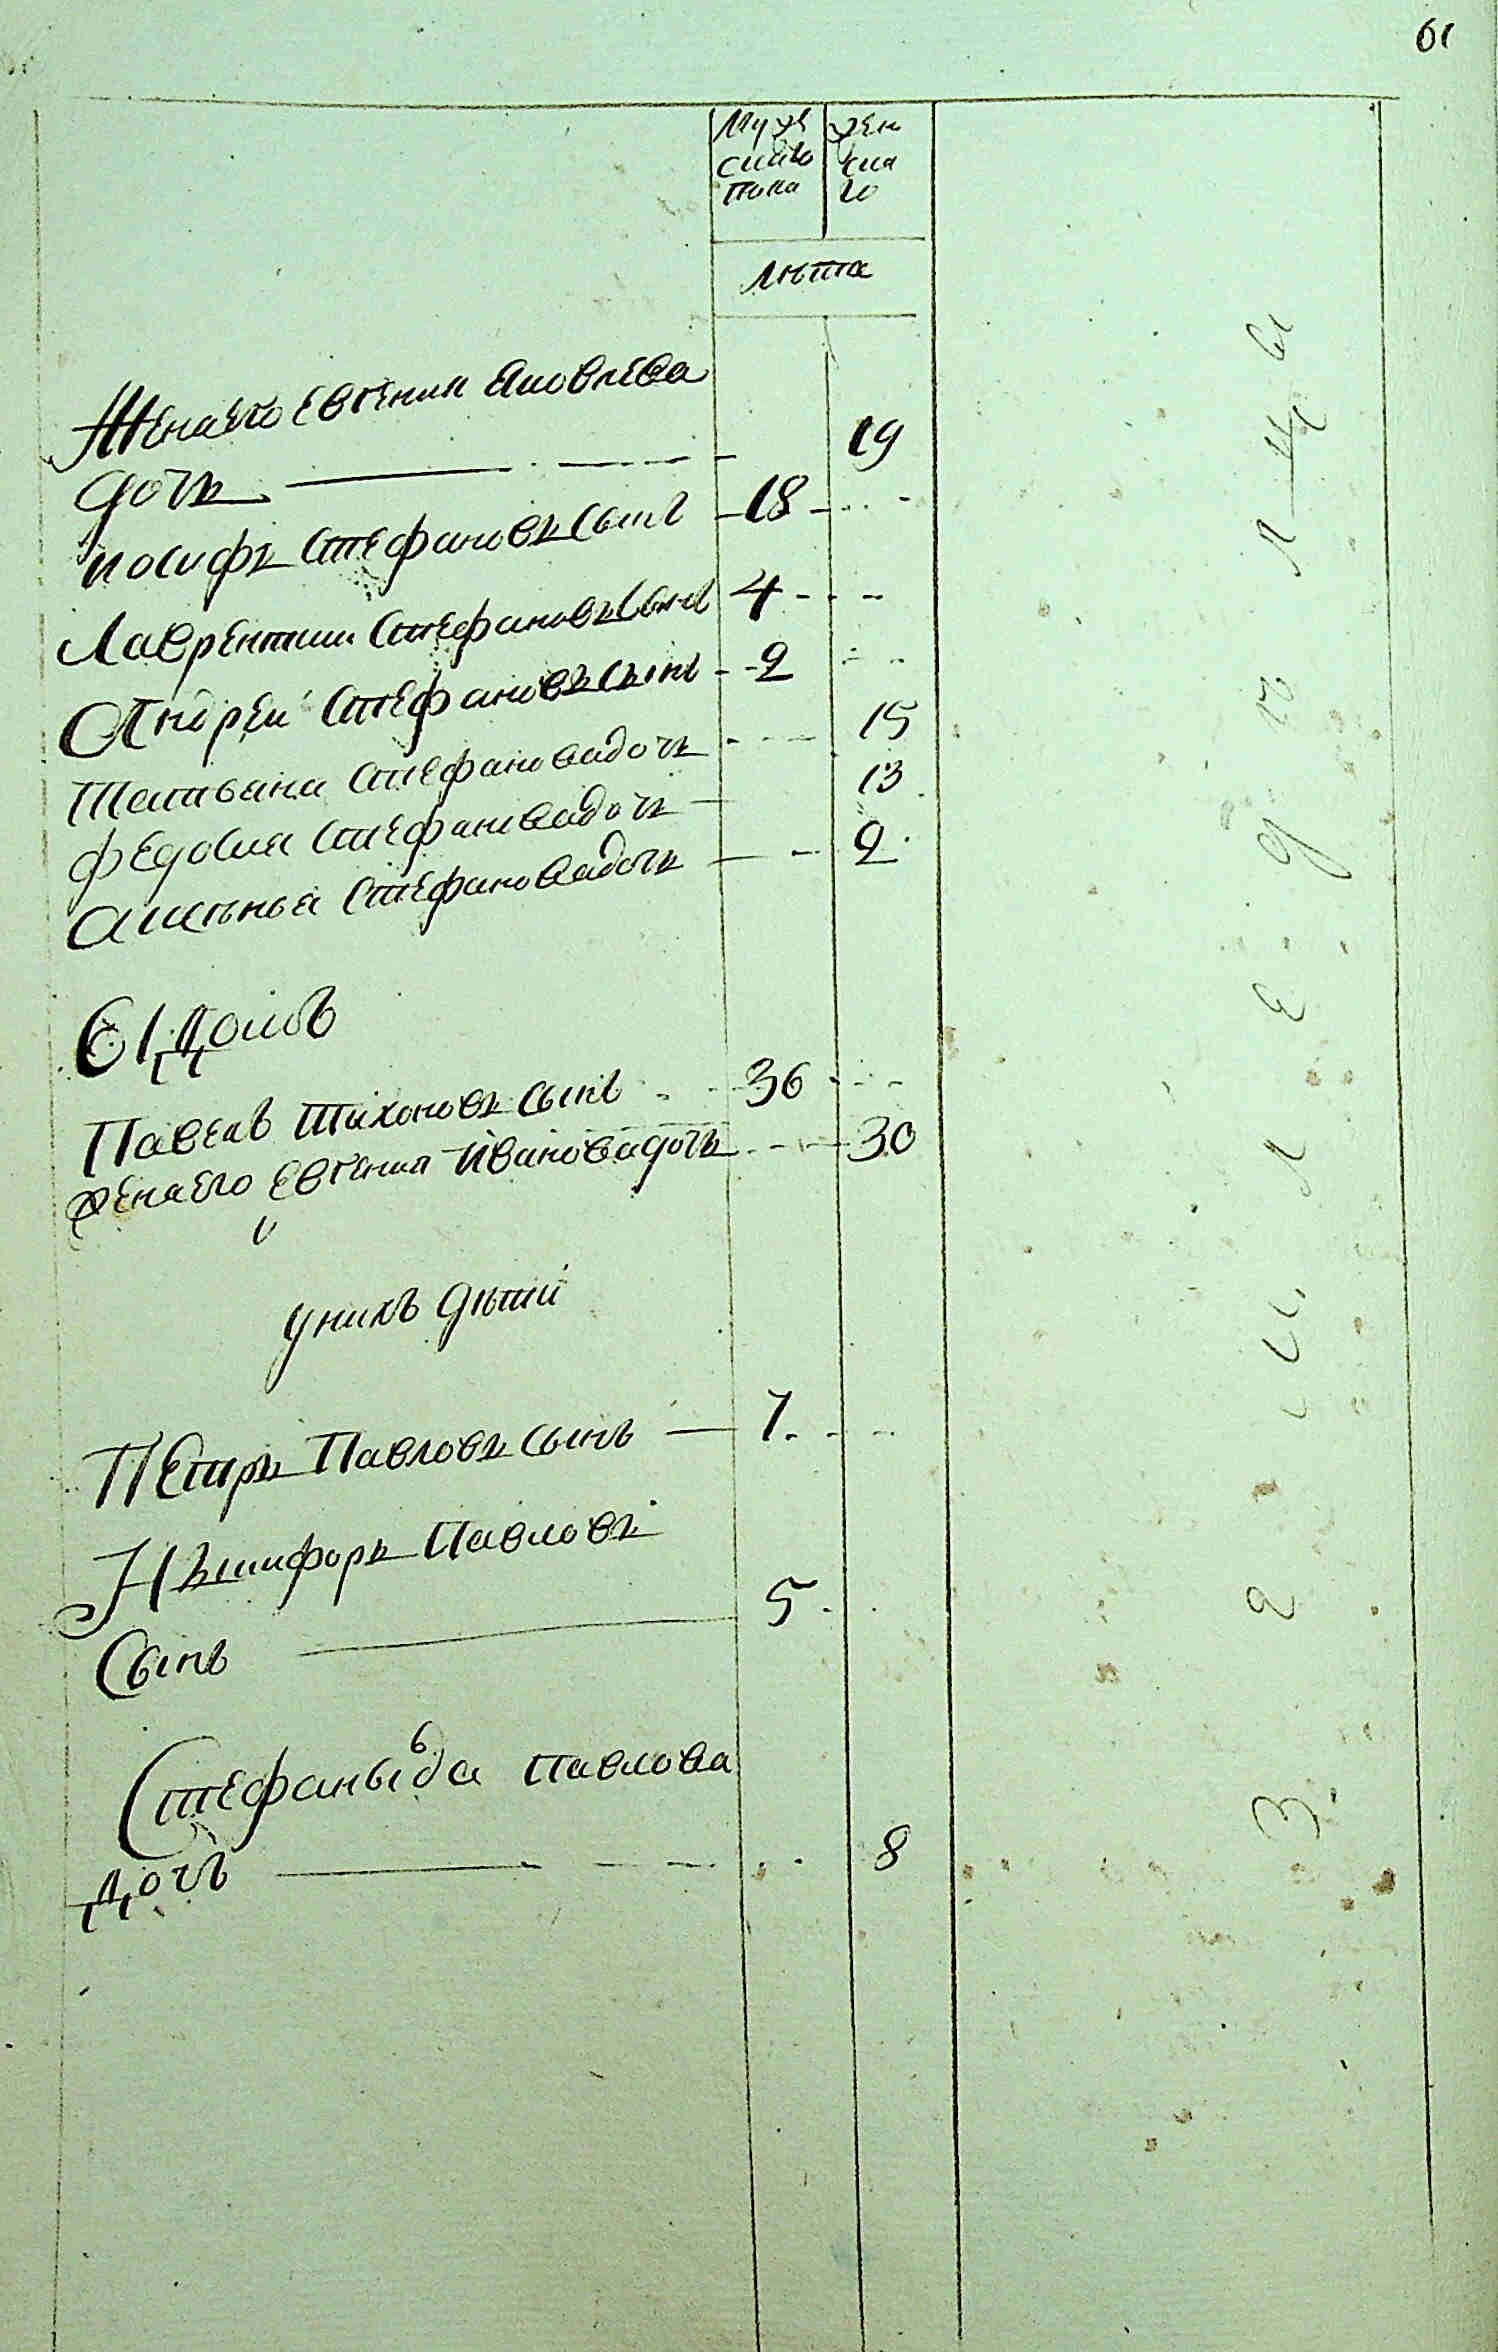 61
Муже женъ
скаго ска
пола го
лѣта
Жена его Евгения Яковлева
дочь 19
Иосифъ Стефановъ сынъ 18
Лаврентии Стефановъ сынъ 4
Андреи Стефановъ сынъ 2
Татьяна Стефанова дочь 15
Федосия Стефанова дочь 13
Стефанова дочь 2
61 Домъ
Павелъ Тихоновъ сынъ 36
жена его Евгения Иванова дочь 30
у нихъ дѣти
Петръ Павловъ сынъ 7
Никифоръ Павловъ
Сынъ 5
Стефаныда Павлова
дочь 8